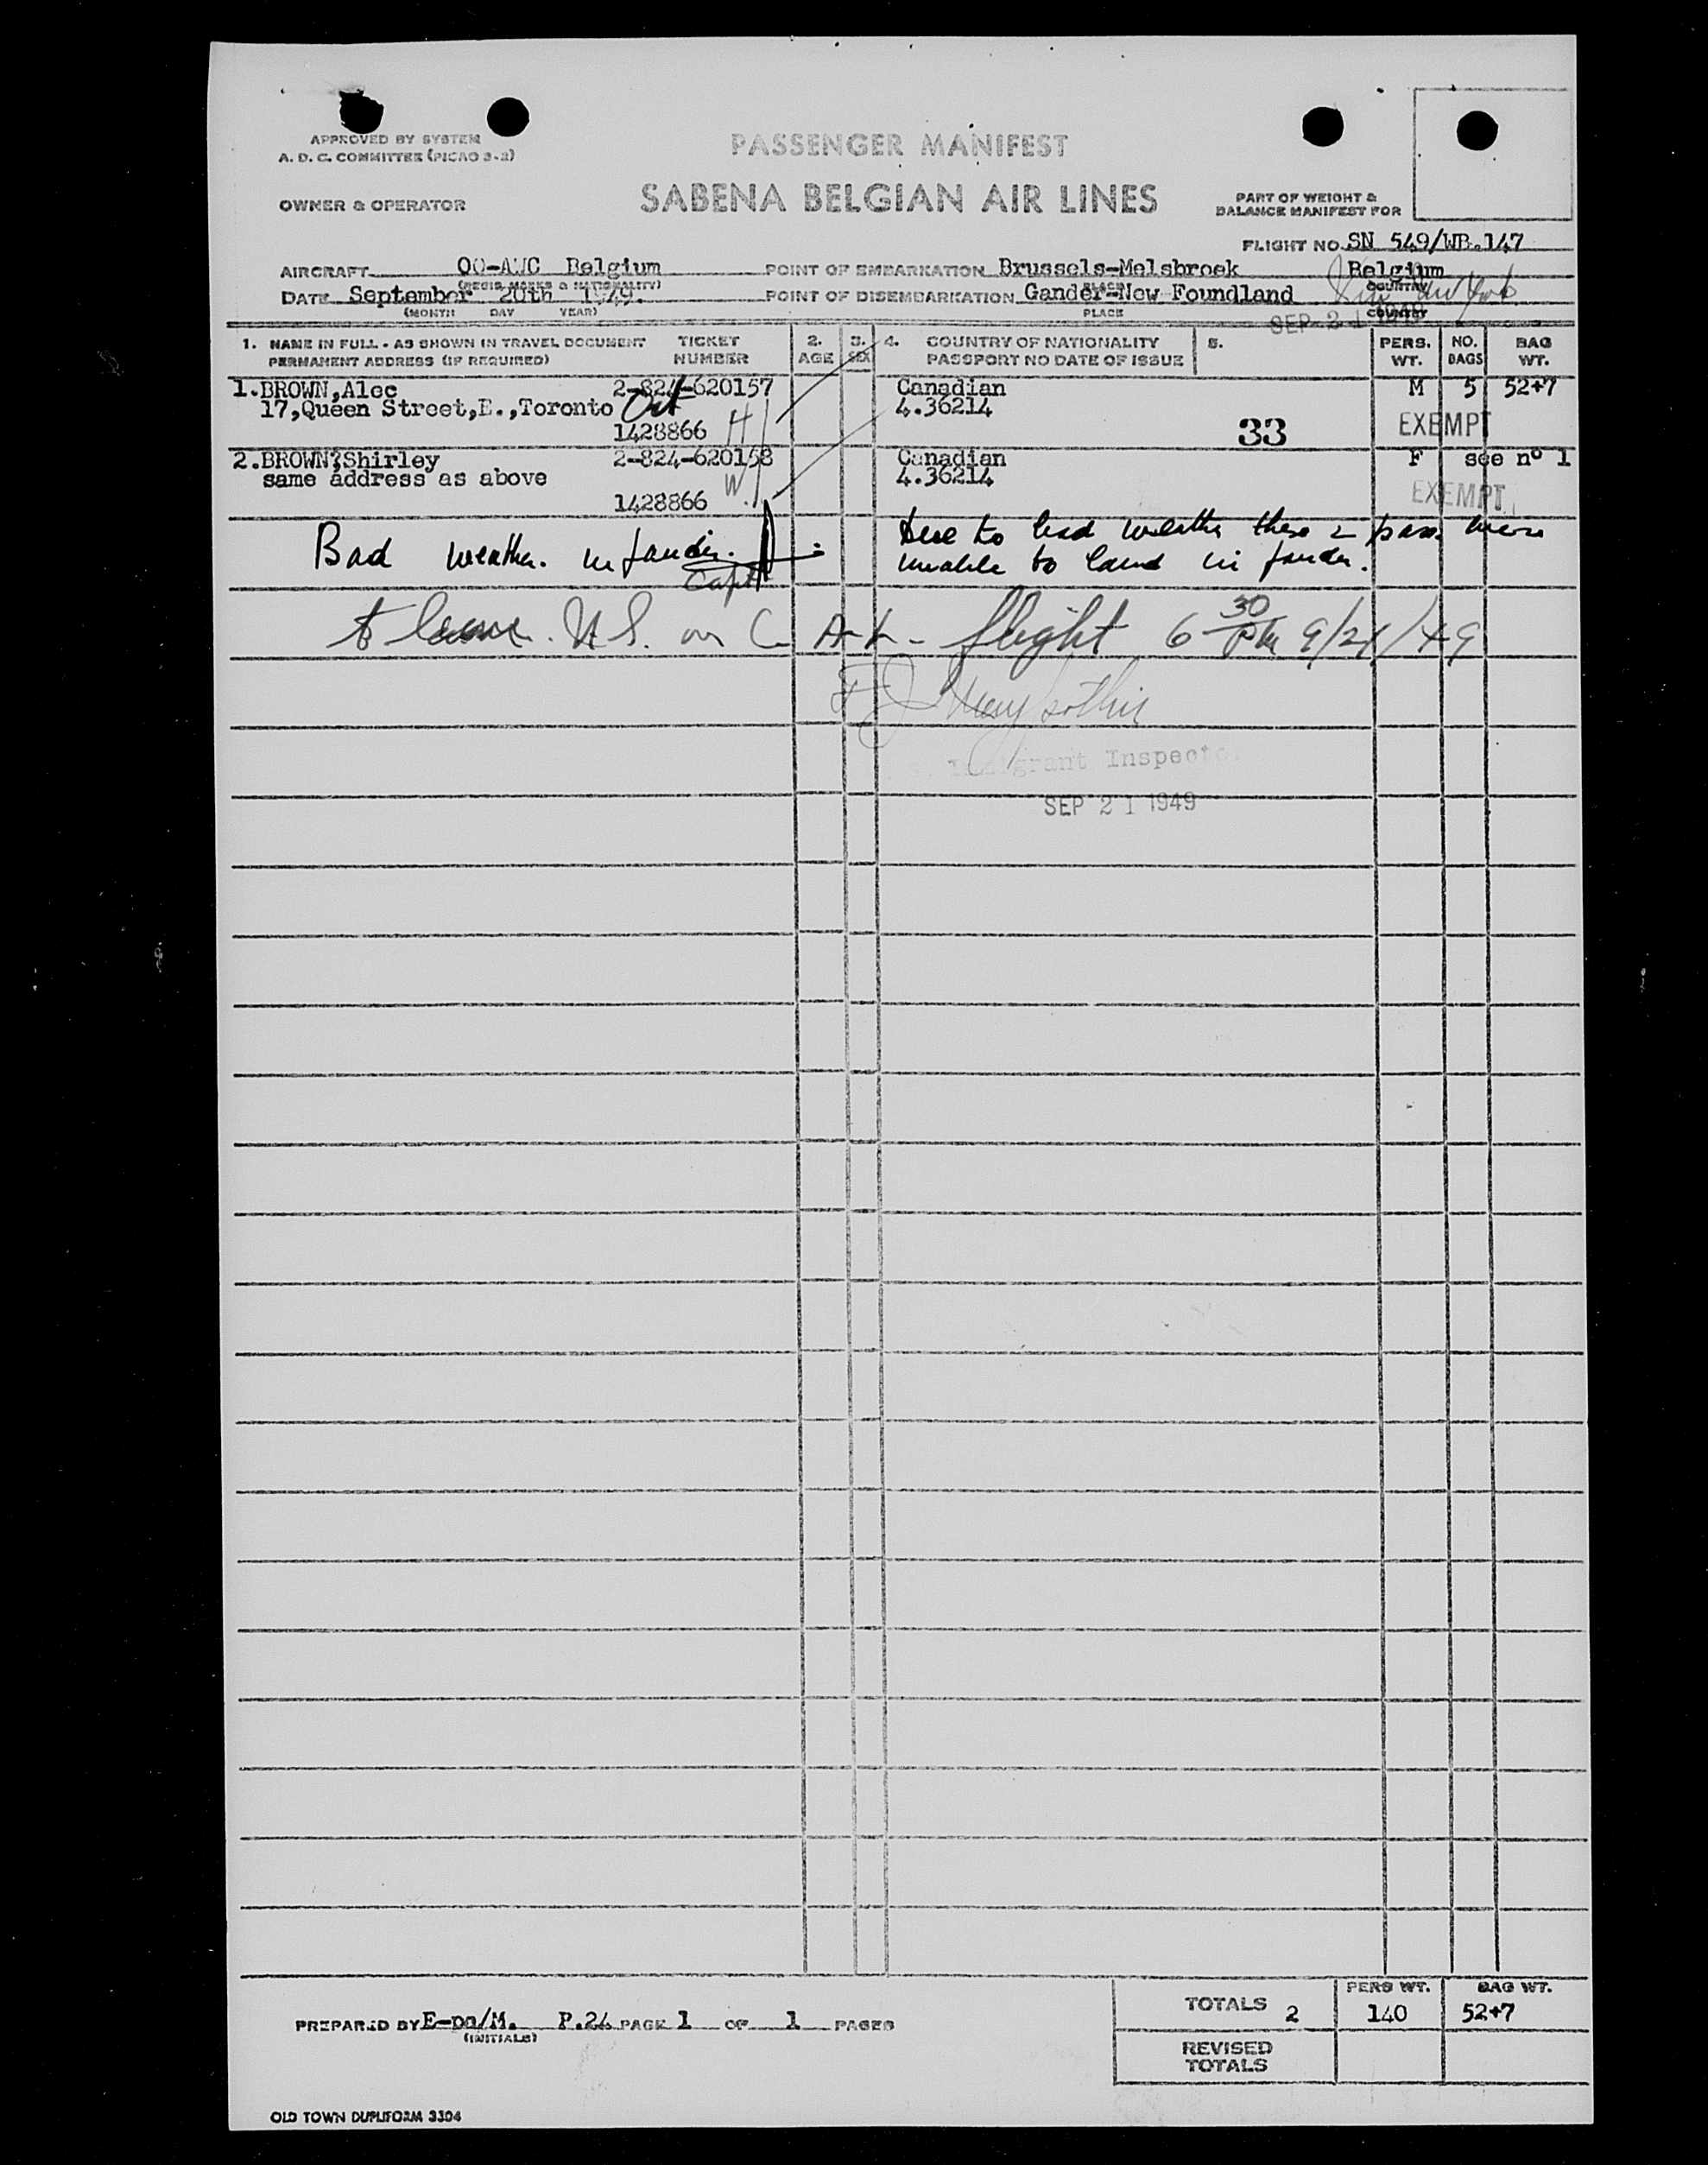 APPROVED BY SYSTEM
A. D. C. COMMITTEE (PICAO 3-2)
PASSENGER MANIFEST
OWNER & OPERATOR
SABENA BELGIAN AIR LINES
PART OF WEIGHT &
BALANCE MANIFEST FOR
FLIGHT NO. SN 549/WB.147
AIRCRAFT OO-AWC Belgium POINT OF EMBARKATION Brussels-Melsbroek Belgium
(REGIS. MARKS & NATIONALITY) PLACE COUNTRY
DATE September 20th 1949. POINT OF DISEMBARKATION Gander-New Foundland New York
(MONTH DAY YEAR) PLACE COUNTRY
SEP 21 1949
1. NAME IN FULL - AS SHOWN IN TRAVEL DOCUMENT TICKET 2. 3. 4. COUNTRY OF NATIONALITY 5. PERS. NO. BAG
PERMANENT ADDRESS (IF REQUIRED) NUMBER AGE SEX PASSPORT NO DATE OF ISSUE WT. BAGS WT.
1.BROWN,Alec 2-824-620157 Canadian M 5 52+7
17,Queen Street,E.,Toronto Ont 4.36214
1428866 H 33 EXEMPT
2.BROWN,Shirley 2-824-620158 Canadian F see n° 1
same address as above W 4.36214
1428866 EXEMPT
Bad weather in Gander. Due to bad weather these 2 pass. were
Capt unable to land in Gander.
to leave U.S. on C A L flight 6 30 PM 9/21/49
Immigrant Inspector
SEP 21 1949
TOTALS 2 PERS WT. 140 BAG WT. 52+7
PREPARED BY E-po/M. P.24 PAGE 1 OF 1 PAGES
(INITIALS)
REVISED
TOTALS
OLD TOWN DUPLIFORM 3304